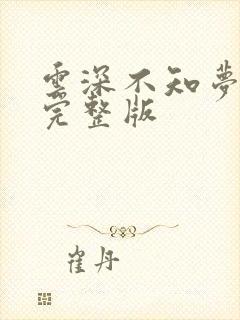 雲深不知夢
完整版
崔丹